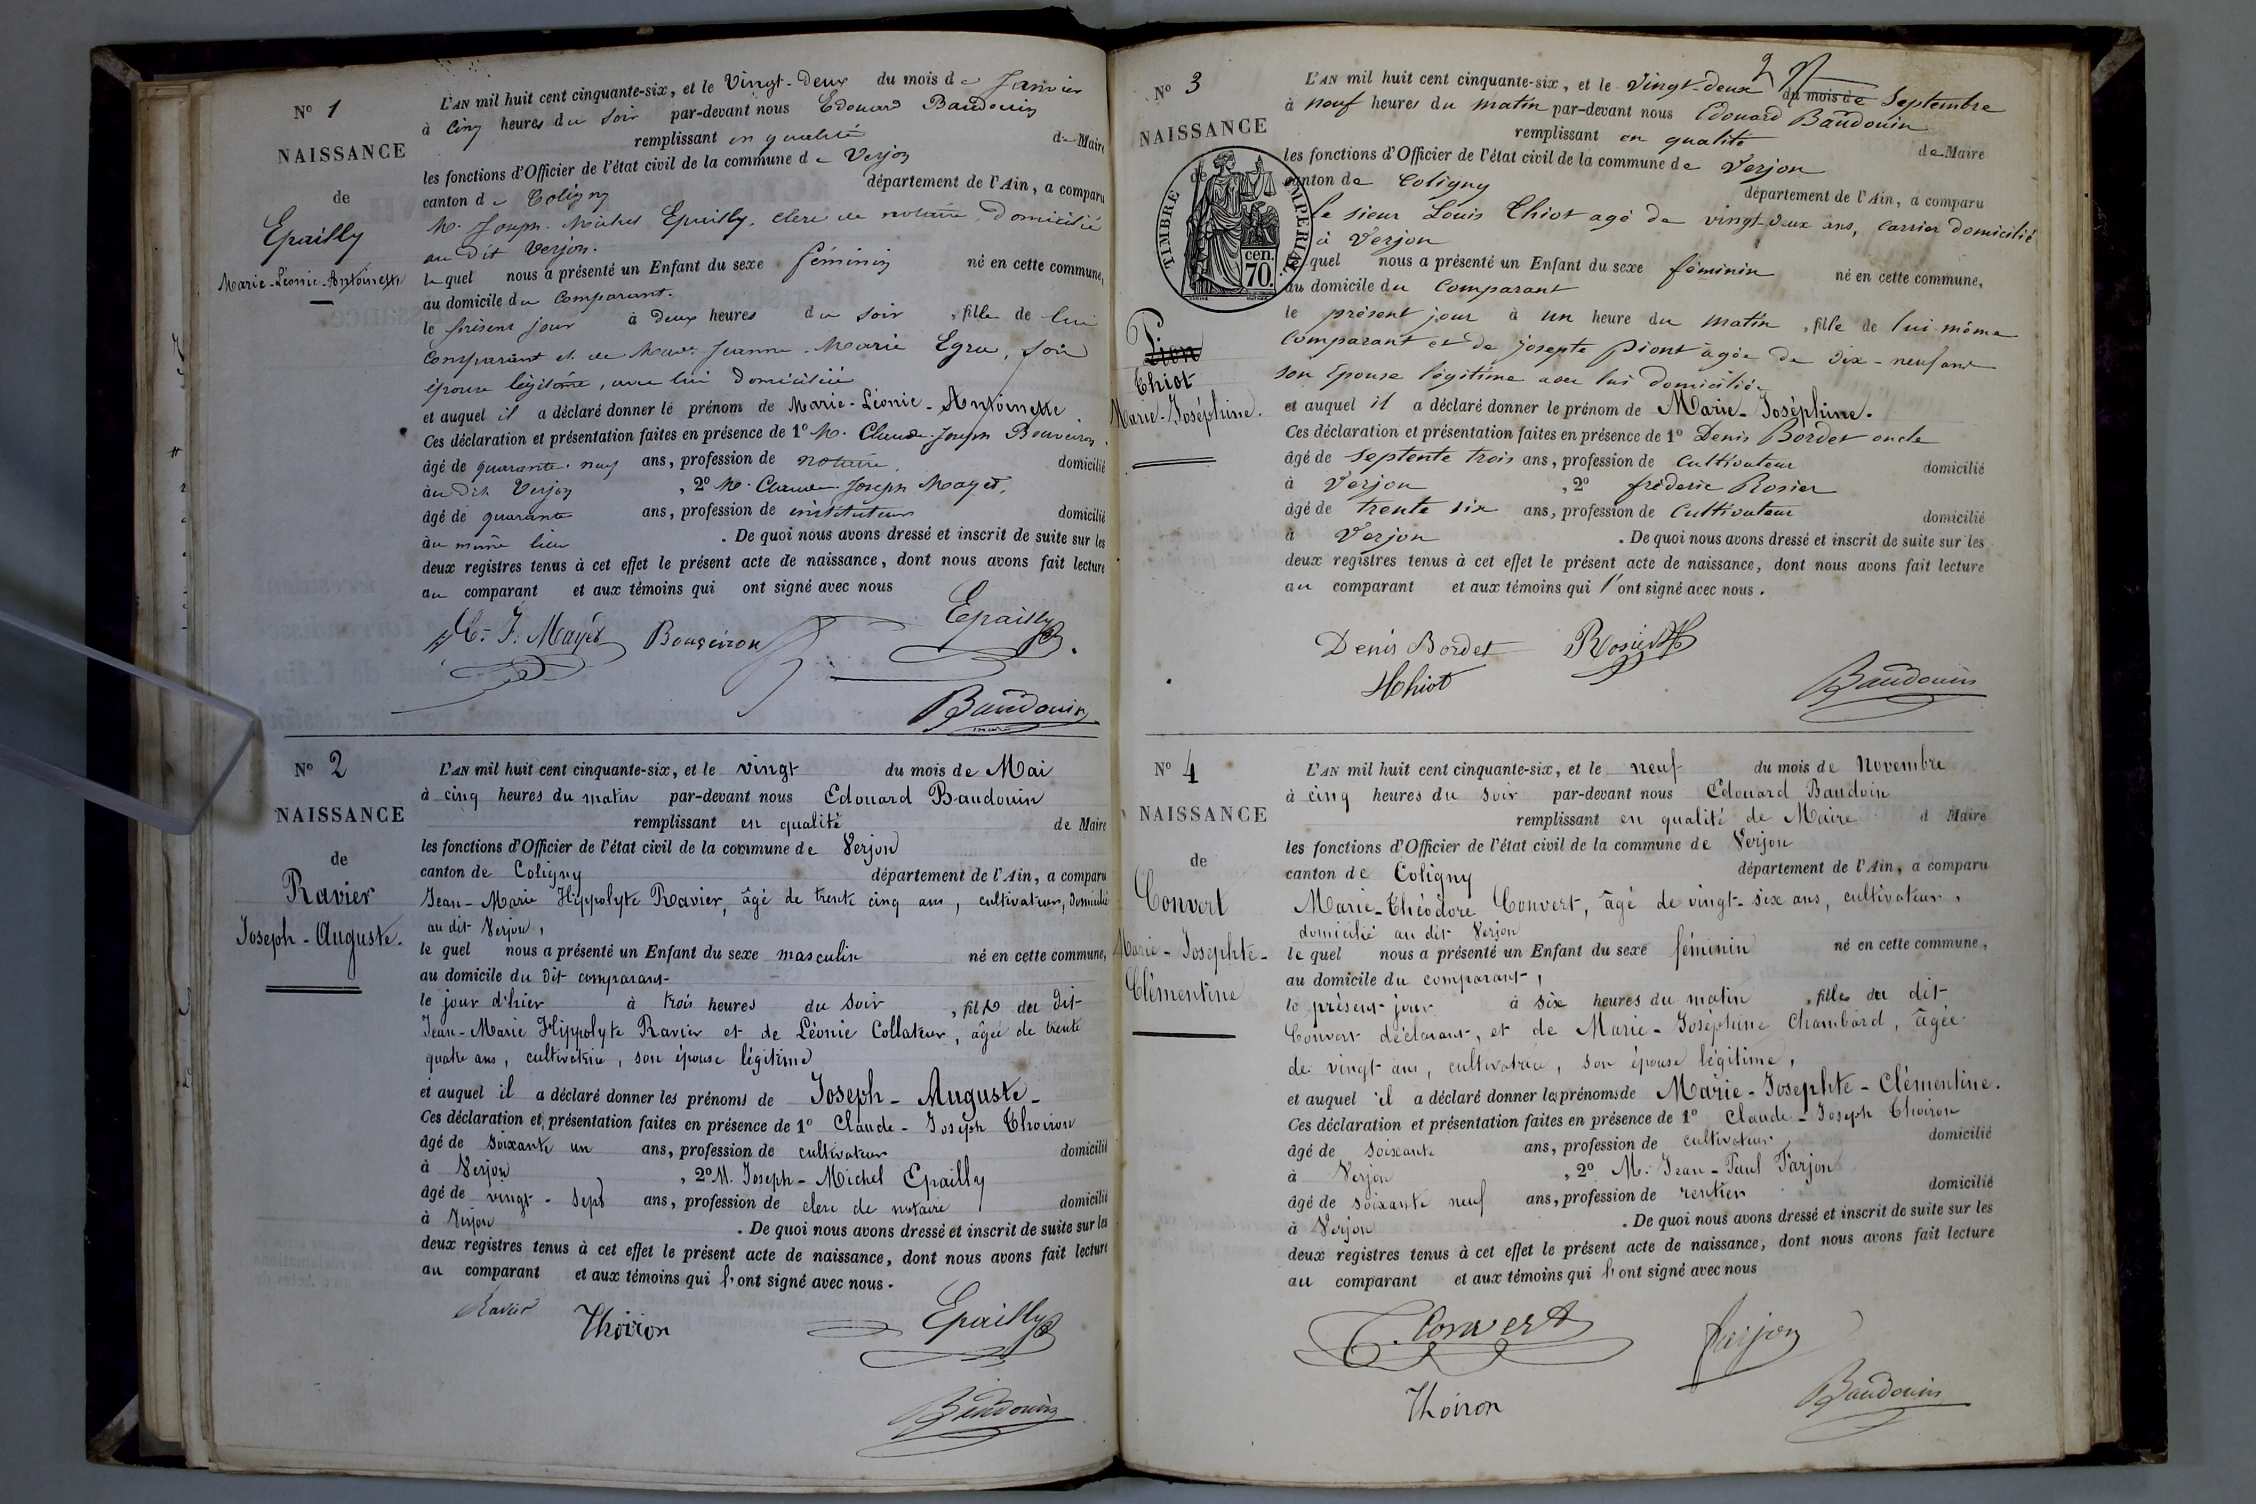 N° 1
NAISSANCE
de
Epailly
Marie-Léonie-Antoinette
L'AN mil huit cent cinquante-six, et le Vingt-Deux du mois de Janvier
à Cinq heures du soir par-devant nous Edouard Baudouin
remplissant en qualité de Maire
les fonctions d'Officier de l'état civil de la commune de Verjon
canton de Coligny département de l'Ain, a comparu
M. Joseph-Michel Epailly, clerc de notaire, domicilié
au dit Verjon.
lequel nous a présenté un Enfant du sexe féminin né en cette commune,
au domicile du Comparant.
le présent jour à deux heures du soir, fille de lui
Comparant et de Jeanne-Marie Egra, son
épouse légitime, avec lui domiciliée
et auquel il a déclaré donner le prénom de Marie-Léonie-Antoinette
Ces déclaration et présentation faites en présence de 1° M. Claude-Joseph Bouveiron
âgé de quarante-neuf ans, profession de notaire domicilié
au dit Verjon, 2° M. Claude Joseph Mayet,
âgé de quarante ans, profession de instituteur domicilié
au même lieu. De quoi nous avons dressé et inscrit de suite sur les
deux registres tenus à cet effet le présent acte de naissance, dont nous avons fait lecture
au comparant et aux témoins qui ont signé avec nous
C. J. Mayet Bouveiron Epailly
Baudouin
maire
N° 2
NAISSANCE
de
Ravier
Joseph-Auguste.
L'AN mil huit cent cinquante-six, et le vingt du mois de Mai
à cinq heures du matin par-devant nous Edouard Baudouin
remplissant en qualité de Maire
les fonctions d'Officier de l'état civil de la commune de Verjon
canton de Coligny département de l'Ain, a comparu
Jean-Marie Hippolyte Ravier, âgé de trente cinq ans, cultivateur, domicilié
au dit Verjon,
le quel nous a présenté un Enfant du sexe masculin né en cette commune,
au domicile du dit comparant
le jour d'hier à trois heures du soir, fils du dit
Jean-Marie Hippolyte Ravier et de Léonie Collateur, âgée de trente
quatre ans, cultivatrice, son épouse légitime
et auquel il a déclaré donner les prénoms de Joseph-Auguste-
Ces déclaration et présentation faites en présence de 1° Claude-Joseph Thoiron
âgé de soixante un ans, profession de cultivateur domicilié
à Verjon, 2° M. Joseph-Michel Epailly
âgé de vingt-sept ans, profession de clerc de notaire domicilié
à Verjon. De quoi nous avons dressé et inscrit de suite sur les
deux registres tenus à cet effet le présent acte de naissance, dont nous avons fait lecture
au comparant et aux témoins qui l'ont signé avec nous.
Ravier Thoiron Epailly
Baudouin
N° 3
NAISSANCE
de
TIMBRE IMPERIAL
cen.
70.
Pion
Thiot
Marie-Joséphine.
L'AN mil huit cent cinquante-six, et le vingt-deux du mois de Septembre
à neuf heures du matin par-devant nous Edouard Baudouin
remplissant en qualité de Maire
les fonctions d'Officier de l'état civil de la commune de Verjon
canton de Coligny département de l'Ain, a comparu
le sieur Louis Thiot agé de vingt-deux ans, carrier domicilié
à Verjon
quel nous a présenté un Enfant du sexe féminin né en cette commune,
au domicile du Comparant
le présent jour à un heure du matin, fille de lui même
Comparant et de Josepte Piont âgée de dix-neuf ans
son Epouse légitime avec lui domiciliée
et auquel il a déclaré donner le prénom de Marie-Joséphine.
Ces déclaration et présentation faites en présence de 1° Denis Bordet oncle
âgé de septente trois ans, profession de Cultivateur domicilié
à Verjon, 2° frédéric Rosier
âgé de trente six ans, profession de Cultivateur domicilié
à Verjon. De quoi nous avons dressé et inscrit de suite sur les
deux registres tenus à cet effet le présent acte de naissance, dont nous avons fait lecture
au comparant et aux témoins qui l'ont signé avec nous.
Denis Bordet Rosier
Thiot Baudouin
N° 4
NAISSANCE
de
Convert
Marie-Josephte-
Clémentine
L'AN mil huit cent cinquante-six, et le neuf du mois de Novembre
à cinq heures du soir par-devant nous Edouard Baudoin
remplissant en qualité de Maire d Maire
les fonctions d'Officier de l'état civil de la commune de Verjon
canton de Coligny département de l'Ain, a comparu
Marie-Théodore Convert, âgé de vingt-six ans, cultivateur,
domicilié au dit Verjon
le quel nous a présenté un Enfant du sexe féminin né en cette commune,
au domicile du comparant,
le présent jour à six heures du matin, fille du dit
Convert déclarant, et de Marie-Joséphine Chambard, âgée
de vingt ans, cultivatrice, son épouse légitime,
et auquel il a déclaré donner les prénoms de Marie-Josephte-Clémentine.
Ces déclaration et présentation faites en présence de 1° Claude-Joseph Thoiron
âgé de soixante ans, profession de cultivateur domicilié
à Verjon, 2° M. Jean-Paul Farjon
âgé de soixante neuf ans, profession de rentier domicilié
à Verjon. De quoi nous avons dressé et inscrit de suite sur les
deux registres tenus à cet effet le présent acte de naissance, dont nous avons fait lecture
au comparant et aux témoins qui l'ont signé avec nous
T. Convert farjon
Thoiron Baudouin